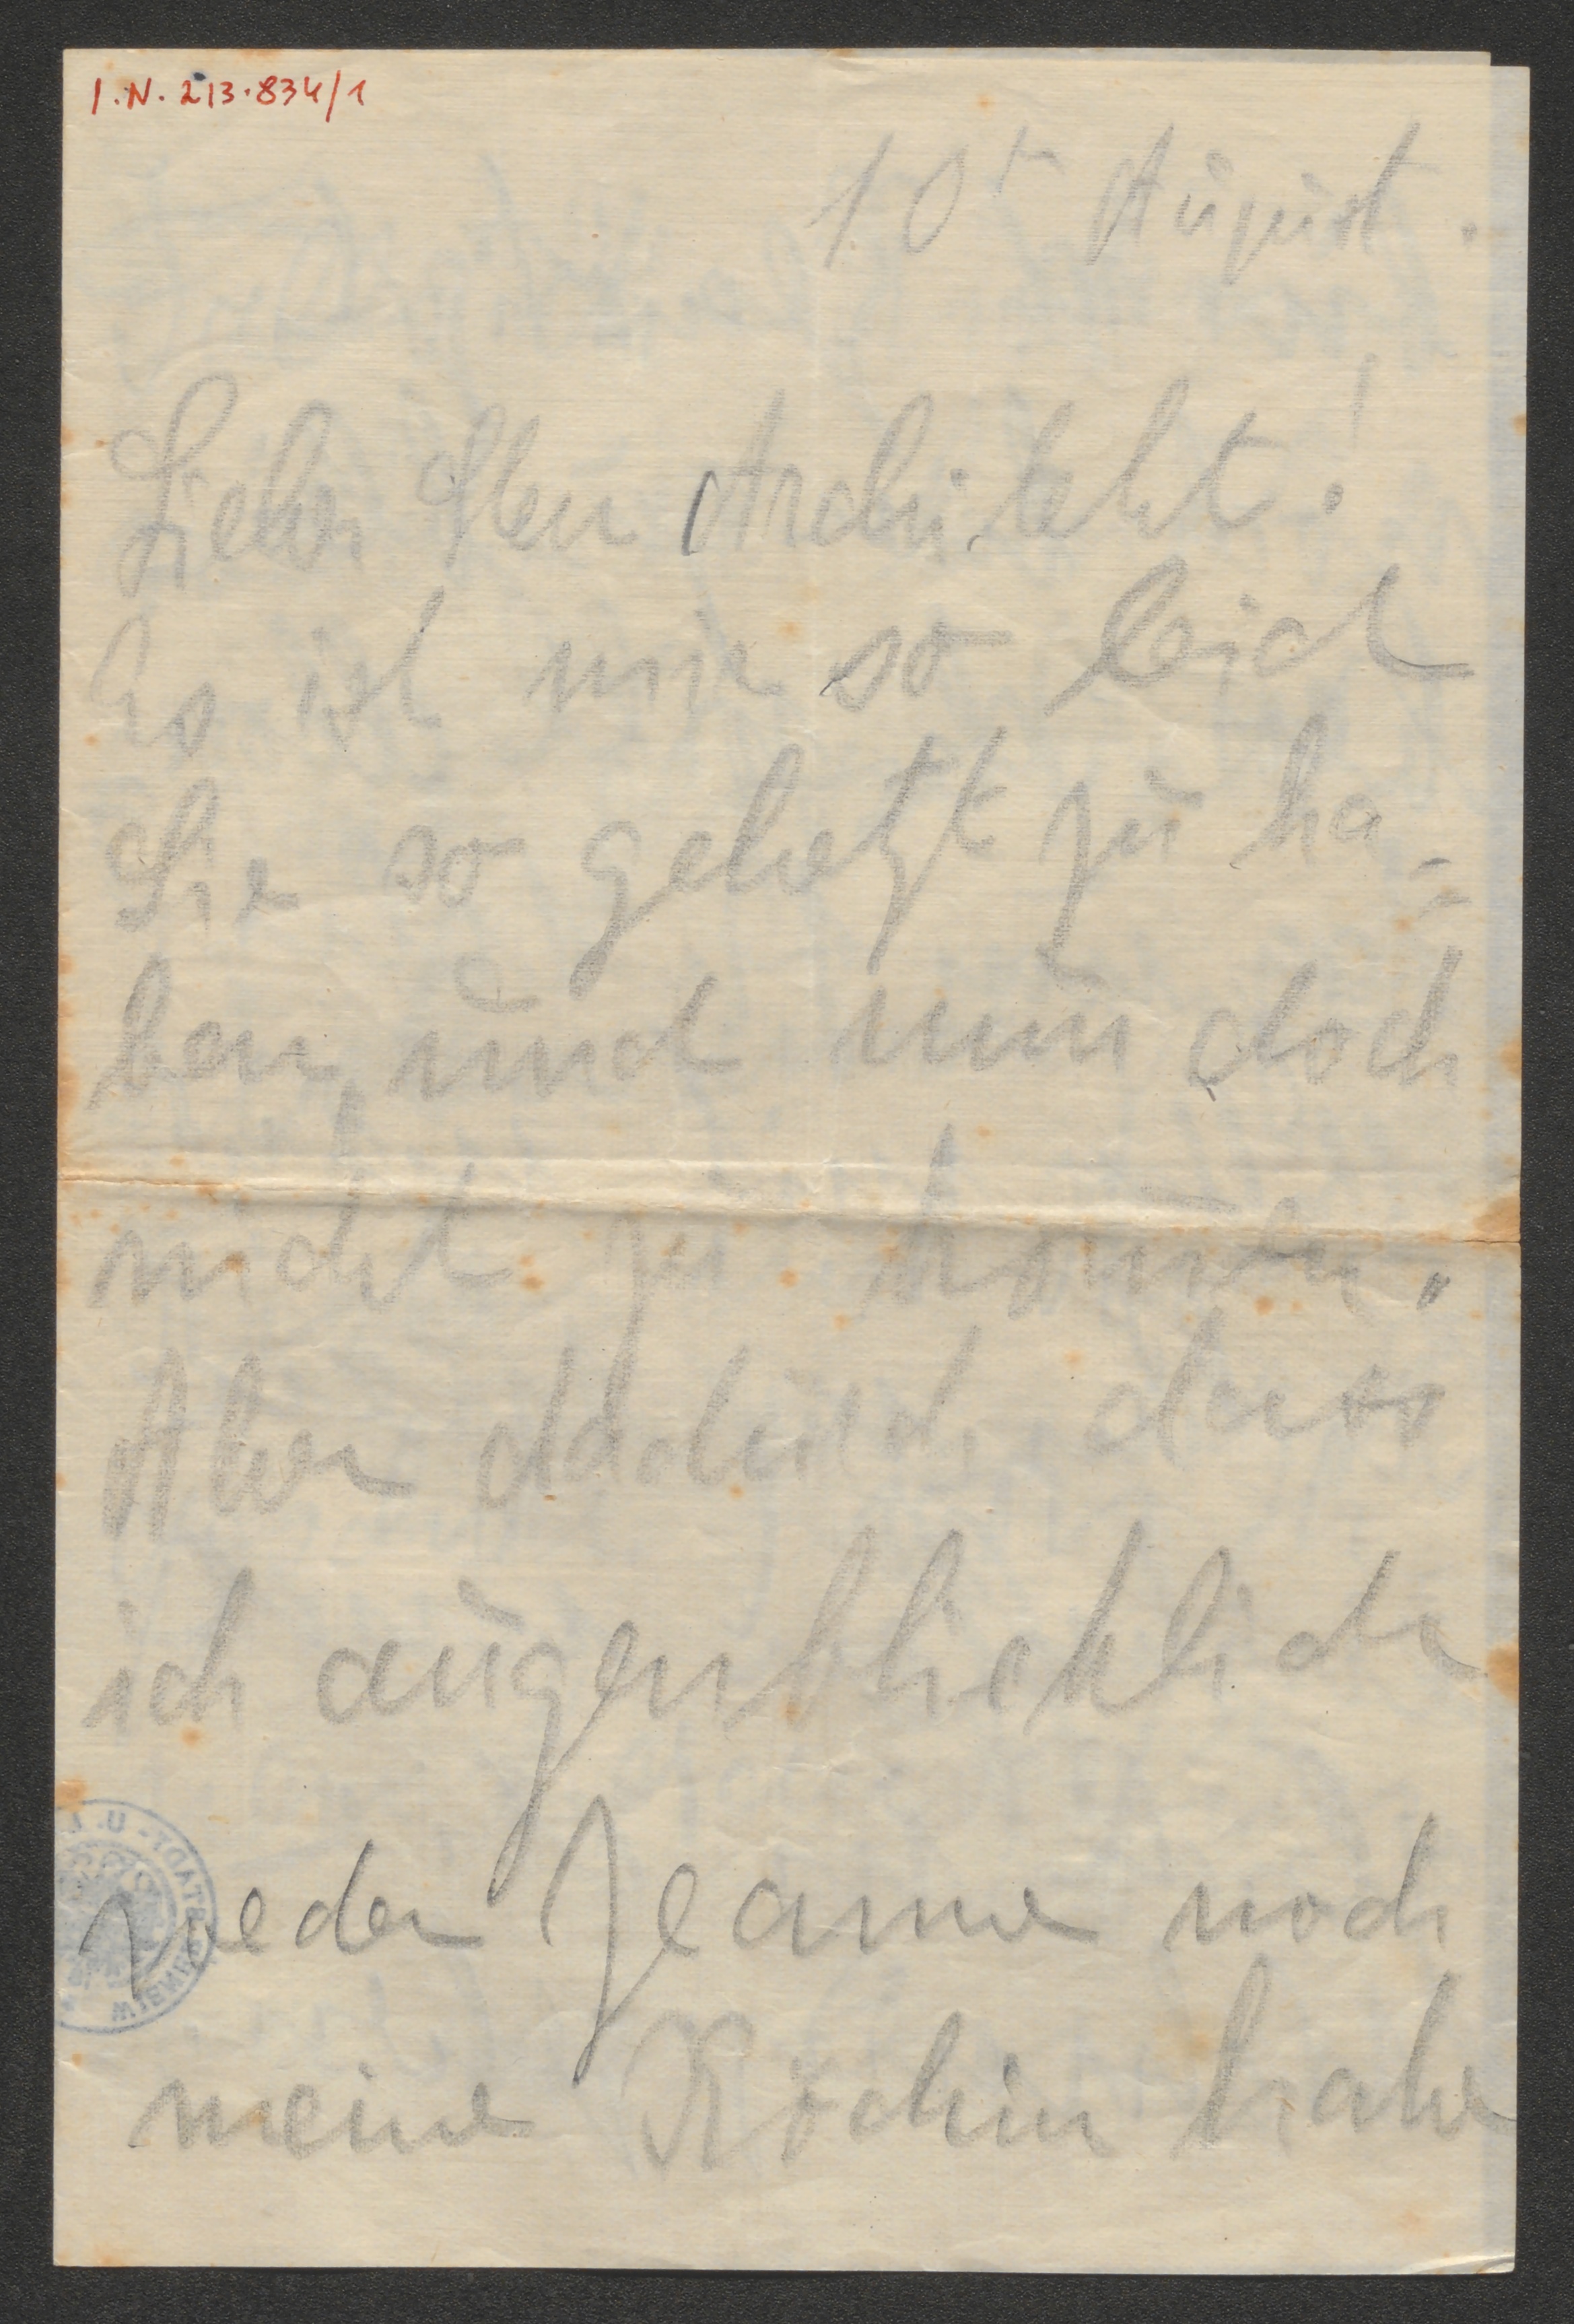 I.N. 213.834/1
10t August.
Lieber Herr Architekt!
Es ist mir so leid
Sie so gehetzt zu ha=
ben und nun doch
nicht zu kommen.
Aber dadurch dass
ich augenblicklich
weder Jeanne noch
meine Köchin habe